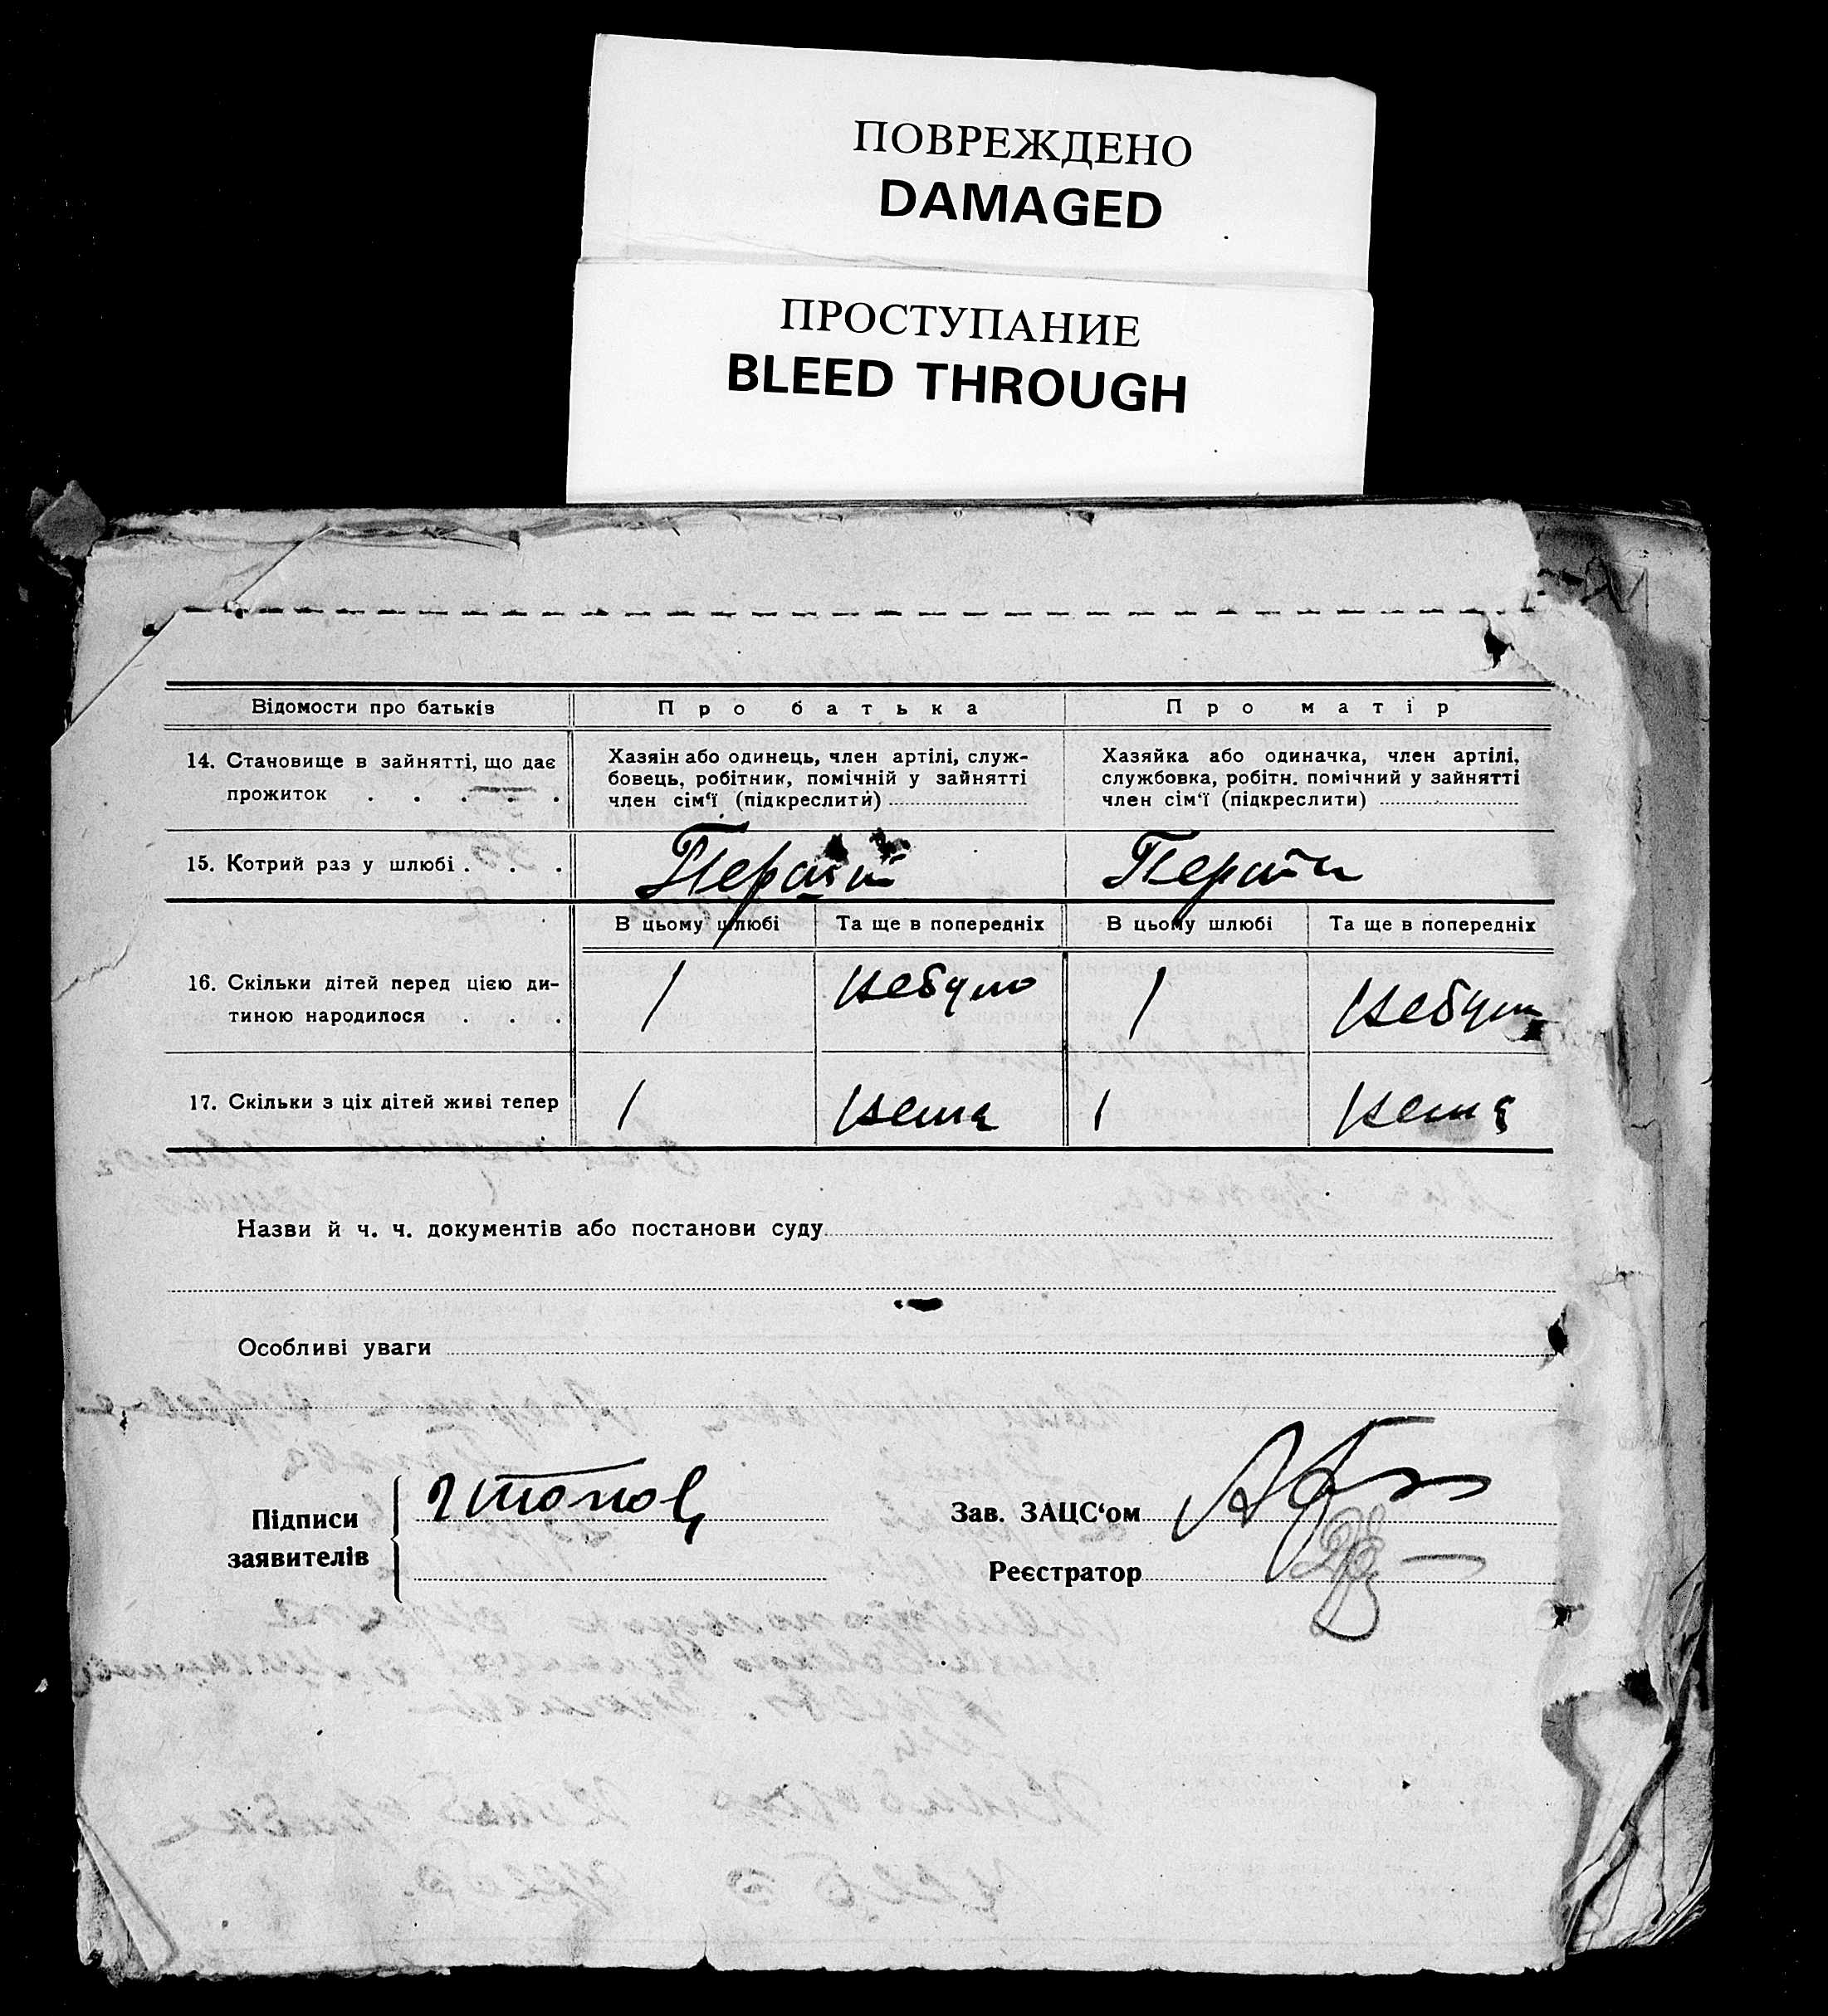 ПОВРЕЖДЕНО
DAMAGED
ПРОСТУПАНИЕ
BLEED THROUGH
Відомости про батьків
Про батька
Про матір
14. Становище в зайнятті, що дає
прожиток . . . . .
Хазяін або одинець, член артілі, служ-
бовець, робітник, помічній у зайнятті
член сім'ї (підкреслити)
Хазяйка або одиначка, член артілі,
службовка, робітн. помічний у зайнятті
член сім'ї (підкреслити)
15. Котрий раз у шлюбі . . .
Перший
Перший
В цьому шлюбі
Та ще в попередніх
В цьому шлюбі
Та ще в попередніх
16. Скільки дітей перед цією ди-
тиною народилося . . .
1
небуло
1
небуло
17. Скільки з ціх дітей живі тепер
1
нема
1
нема
Назви й ч. ч. документів або постанови суду
Особливі уваги
Підписи
заявителів
Зав. ЗАЦС'ом
Реєстратор